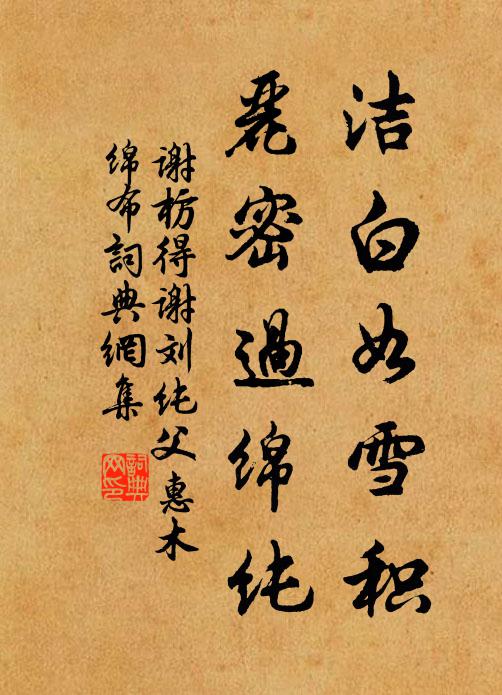 洁白如雪积
麗密過綿纯
谢枋得谢刘纯父惠木
绵布詞典網集
詞典网印